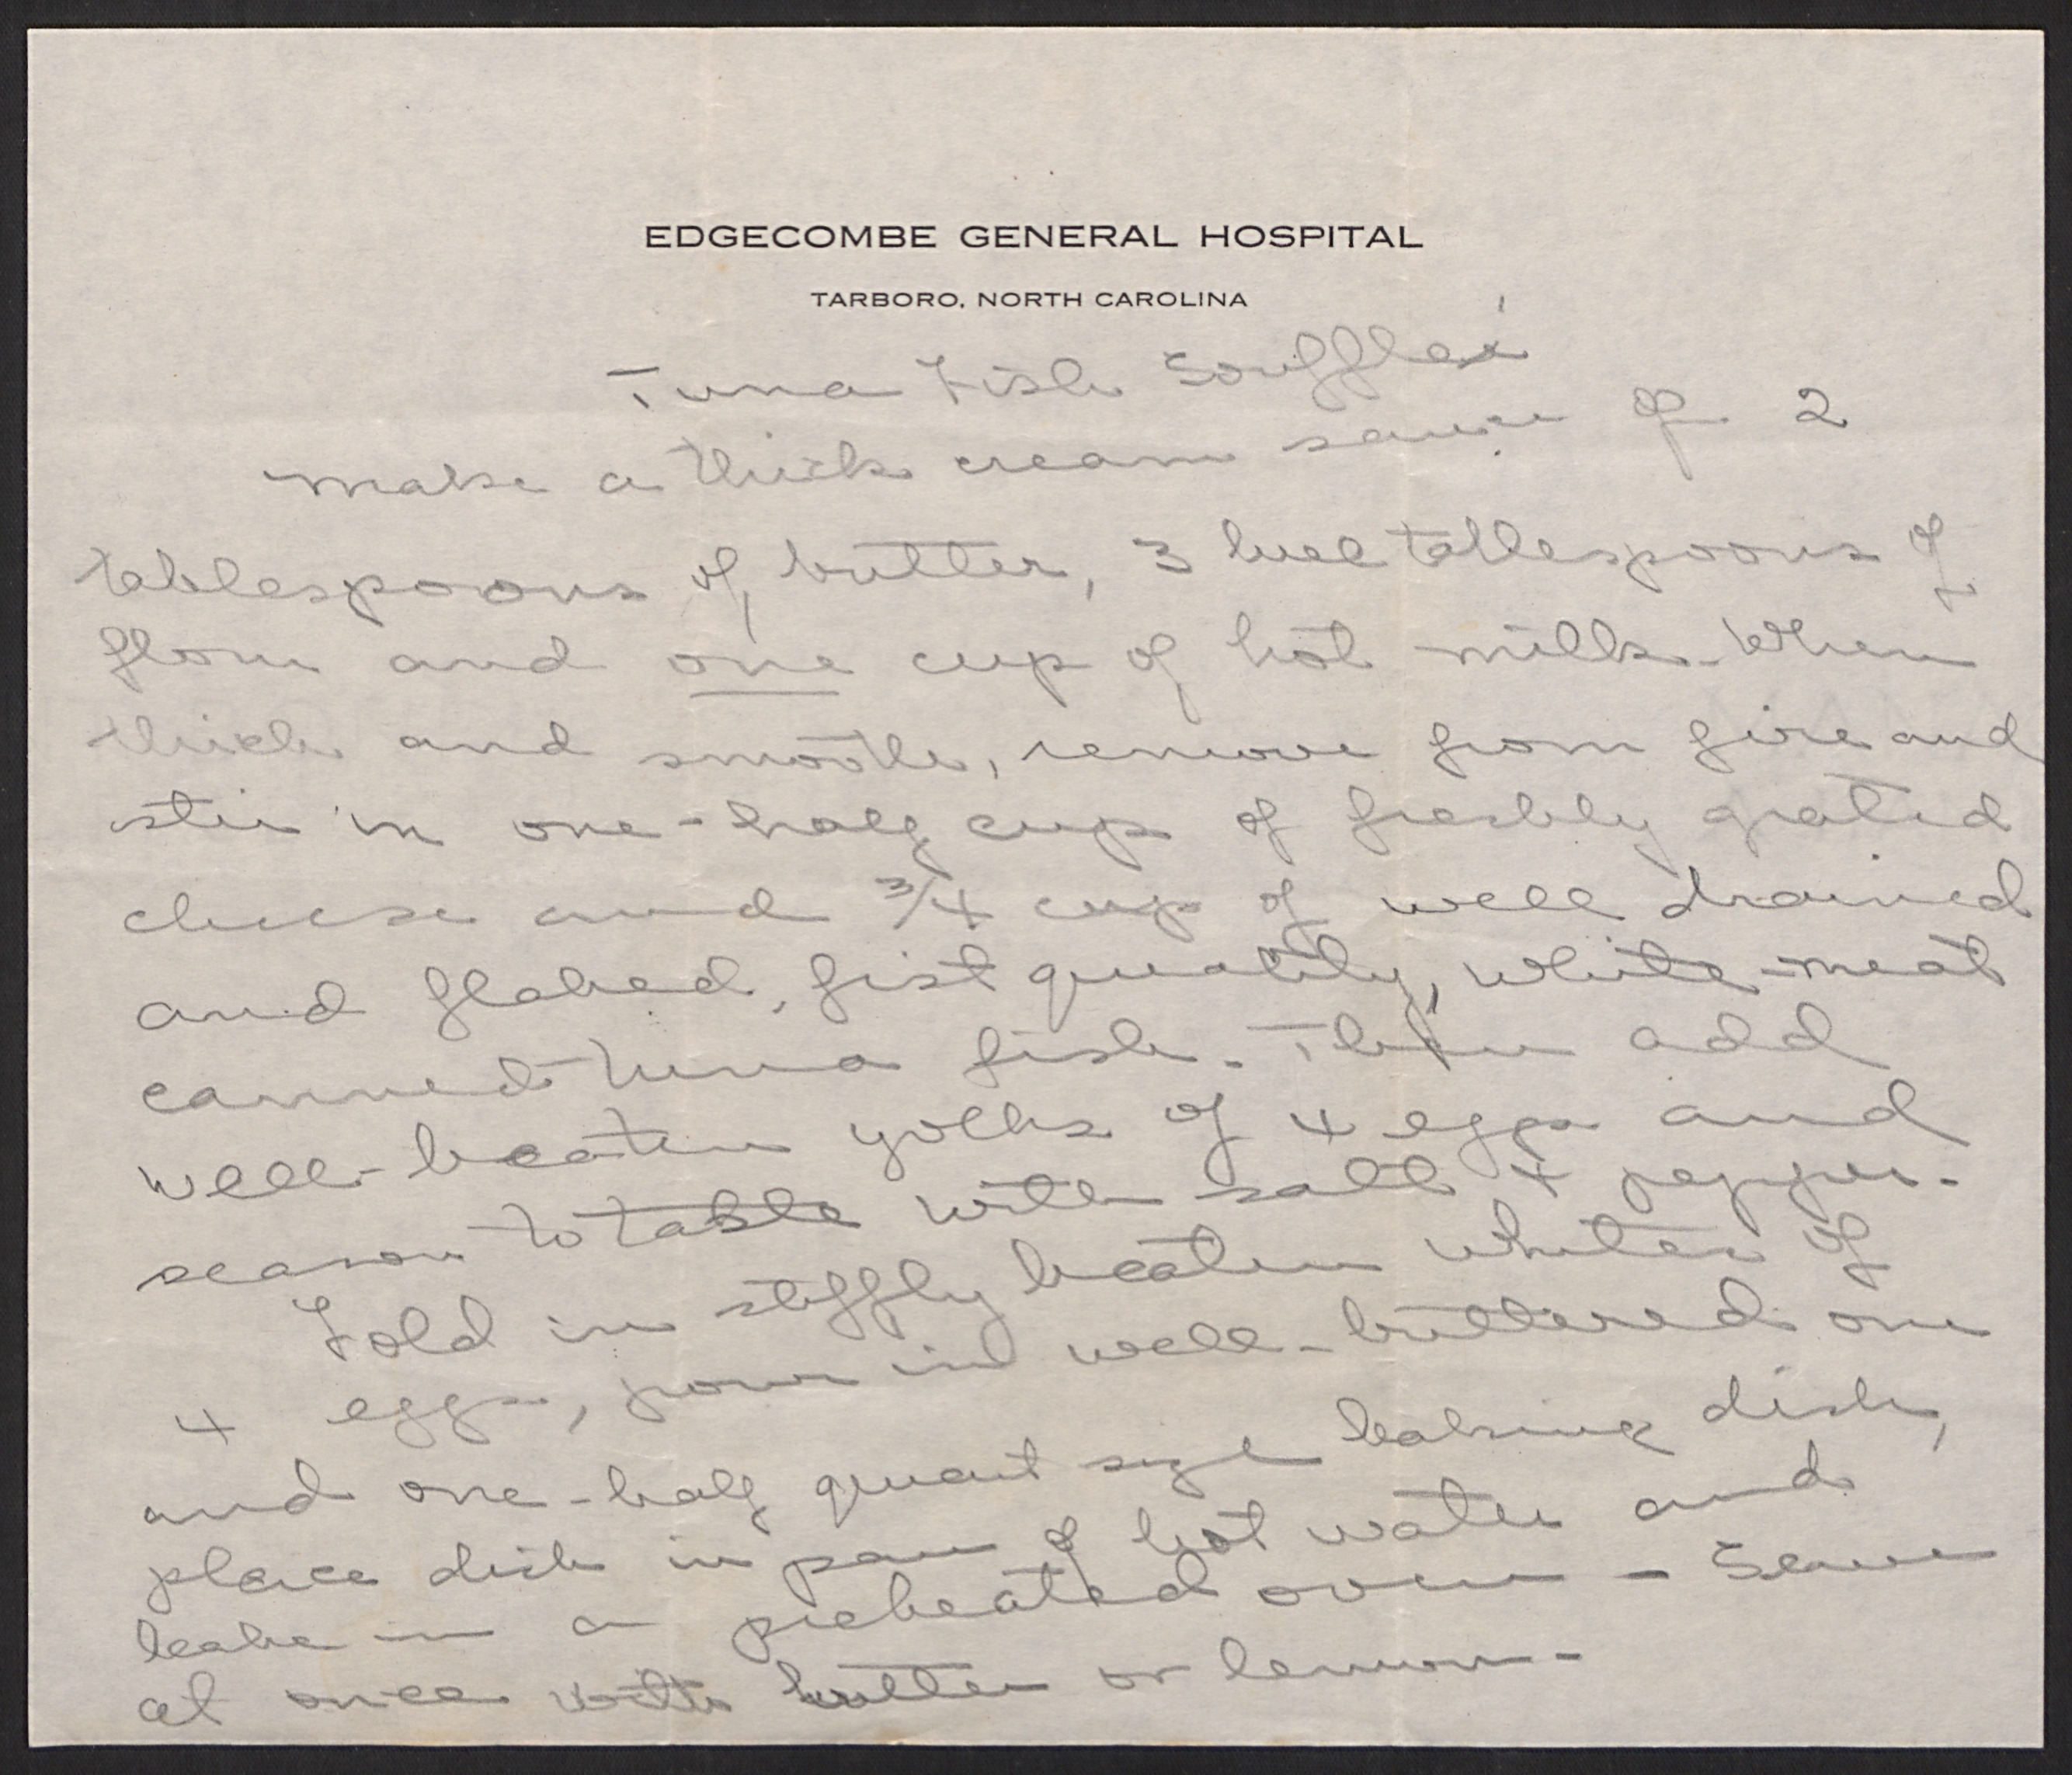 EDGECOMBE GENERAL HOSPITAL
TARBORO, NORTH CAROLINA
Tuna Fish Soufflé
make a thick cream sauce of 2
tablespoons of butter, 3 level tablespoons of
flour and one cup of hot milk - When
thick and smooth, remove from fire and
stir in one-half cup of freshly grated
cheese and 3/4 cup of well drained
and flaked, fist quality, white-meat
canned tuna fish - Then add
well-beaten yolks of 4 eggs and
season to table with salt + pepper -
Fold in stiffly beaten whites of
4 eggs, pour in well-buttered one
and one-half quart size baking dish,
place dish in pan of hot water and
bake in a preheated oven - Serve
at once with butter or lemon -